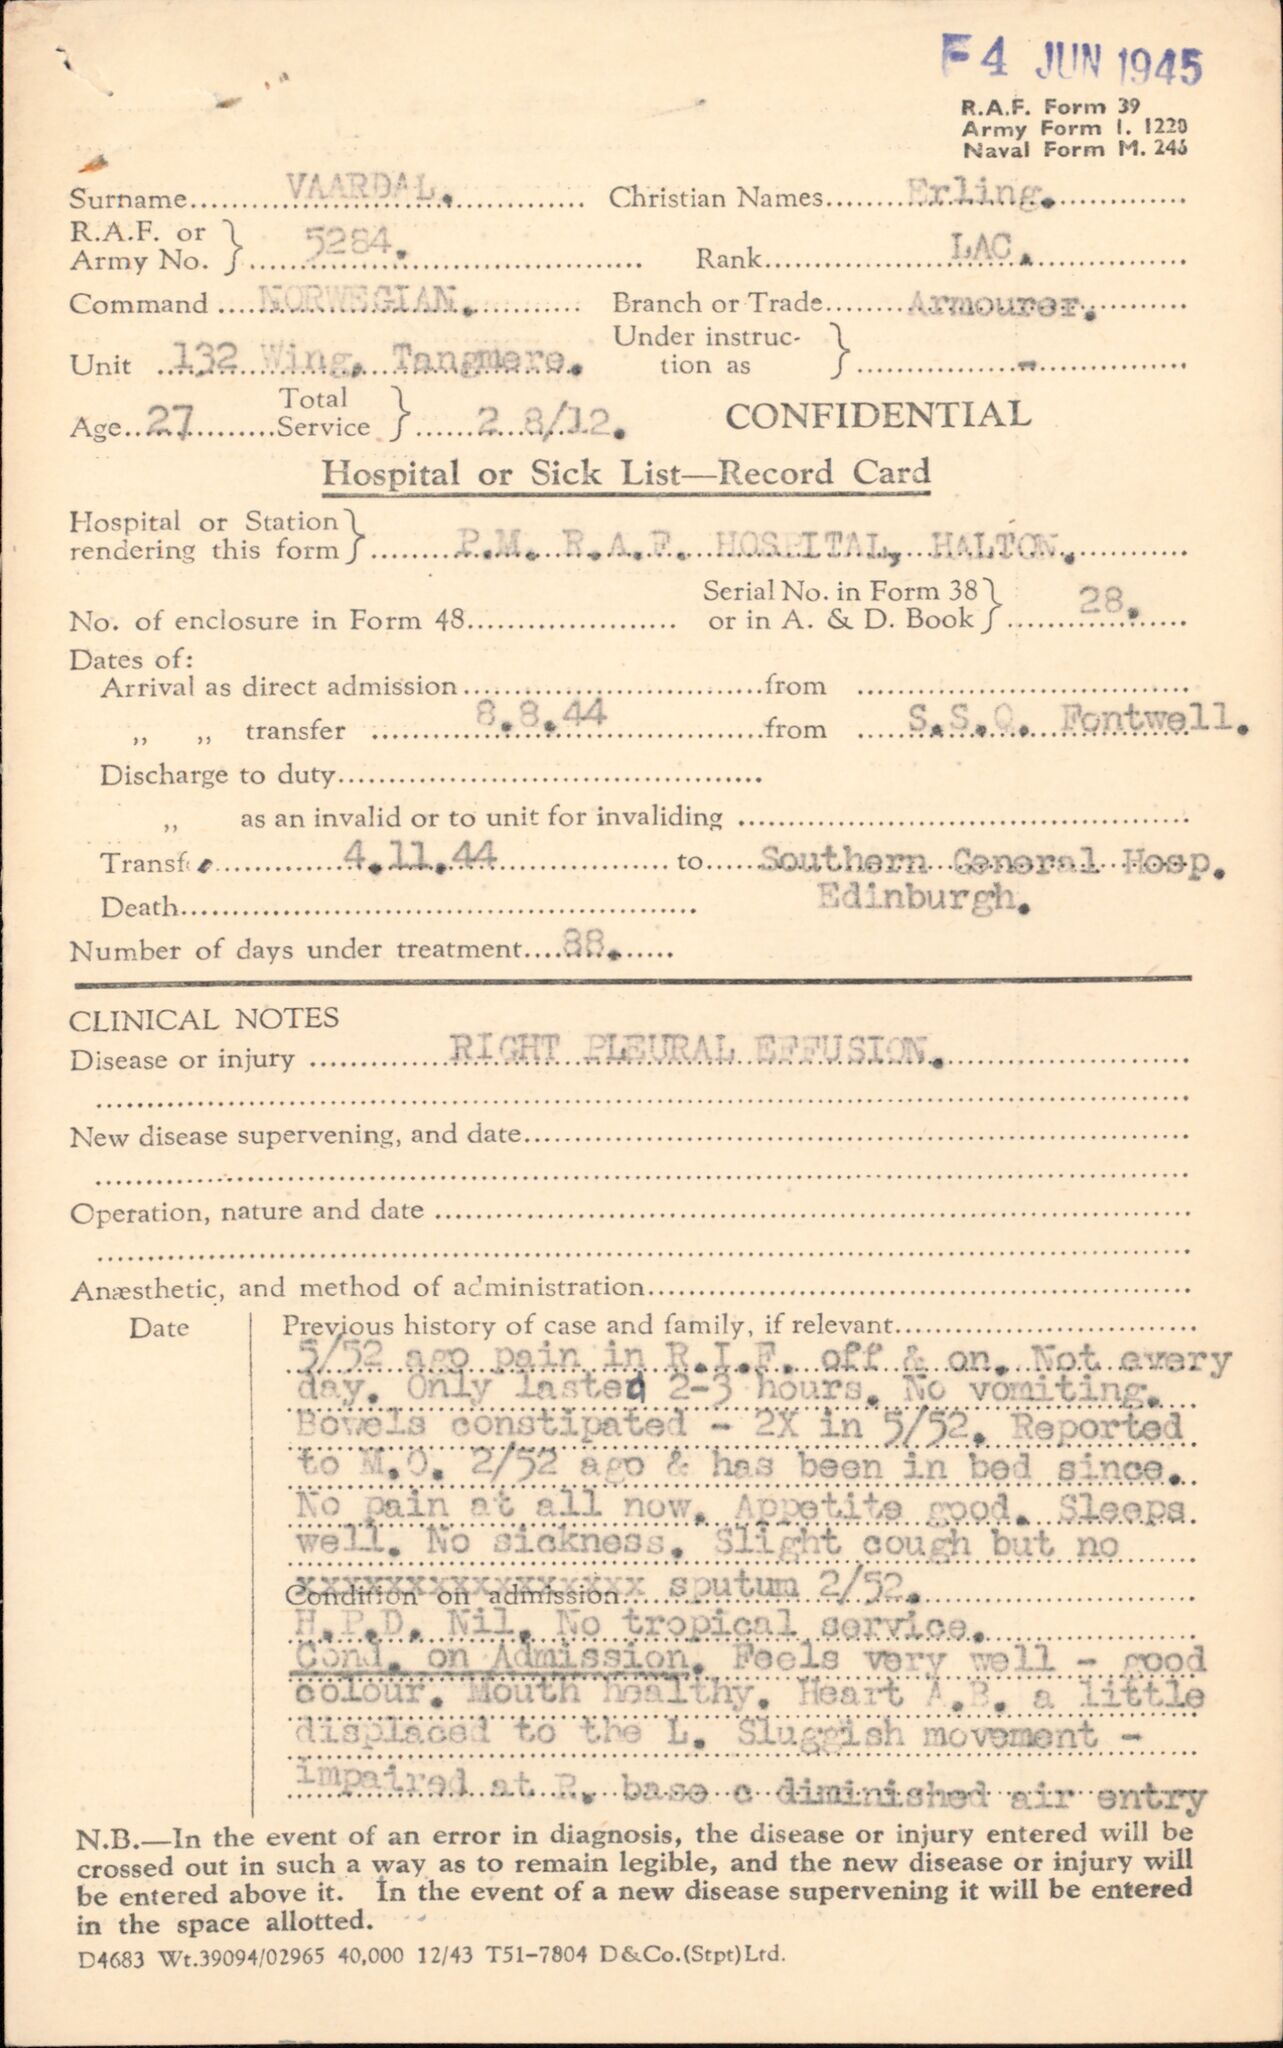 F4 JUN 1945
R.A.F. Form 39
Army Form I. 1220
Naval Form M. 246
Surname VAARDAL. Christian Names Erling.
R.A.F. or Army No. } 5284. Rank LAC.
Command NORWEGIAN. Branch or Trade Armourer.
Unit 132 Wing, Tangmere. Under instruction as } -
Age 27 Total Service } 2 8/12. CONFIDENTIAL
Hospital or Sick List—Record Card
Hospital or Station rendering this form } P.M. R.A.F. HOSPITAL, HALTON.
No. of enclosure in Form 48 Serial No. in Form 38 or in A. & D. Book } 28.
Dates of:
Arrival as direct admission from
,, ,, transfer 8.8.44 from S.S.Q. Fontwell.
Discharge to duty
,, as an invalid or to unit for invaliding
Transf 4.11.44 to Southern General Hosp.
Edinburgh.
Death
Number of days under treatment 88.
CLINICAL NOTES
Disease or injury RIGHT PLEURAL EFFUSION.
New disease supervening, and date
Operation, nature and date
Anæsthetic, and method of administration
Date Previous history of case and family, if relevant
5/52 ago pain in R.I.F. off & on. Not every
day. Only lasted 2-3 hours. No vomiting.
Bowels constipated - 2X in 5/52. Reported
to M.O. 2/52 ago & has been in bed since.
No pain at all now. Appetite good. Sleeps
well. No sickness. Slight cough but no
Condition on admission xxxxxxxxxxxxxxxxx sputum 2/52.
H.P.D. Nil. No tropical service.
Cond. on Admission. Feels very well - good
colour. Mouth healthy. Heart A.B. a little
displaced to the L. Sluggish movement -
impaired at R. base c diminished air entry
N.B.—In the event of an error in diagnosis, the disease or injury entered will be
crossed out in such a way as to remain legible, and the new disease or injury will
be entered above it. In the event of a new disease supervening it will be entered
in the space allotted.
D4683 Wt.39094/02965 40,000 12/43 T51-7804 D&Co.(Stpt)Ltd.